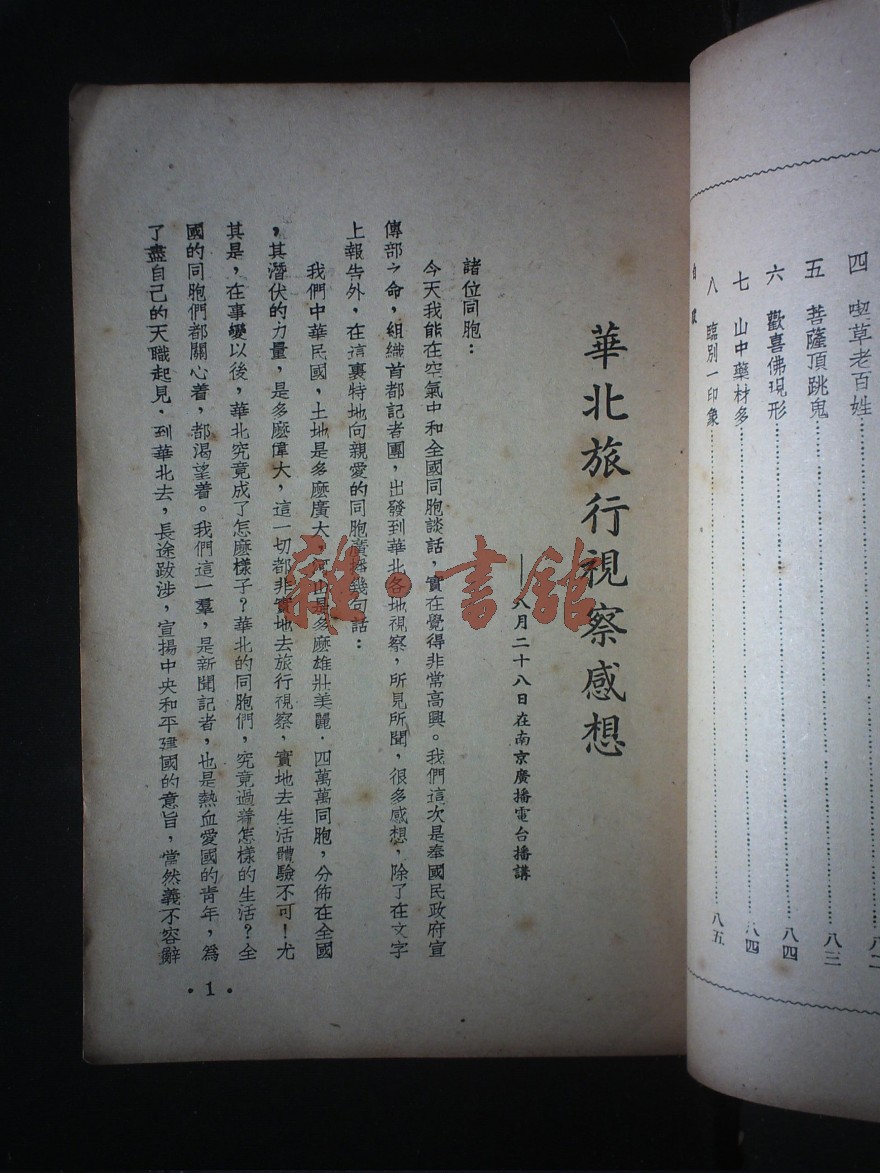 四 喫草老百姓……八二
五 菩薩頂跳鬼……八三
六 歡喜佛現形……八四
七 山中藥材多……八四
八 臨別一印象……八五
華北旅行視察感想
——八月二十八日在南京廣播電台播講
諸位同胞：
今天我能在空氣中和全國同胞談話，實在覺得非常高興。我們這次是奉國民政府宣
傳部之命，組織首都記者團，出發到華北各地視察，所見所聞，很多感想，除了在文字
上報告外，在這裏特地向親愛的同胞廣播幾句話：
我們中華民國，土地是多麽廣大，河山是多麽雄壯美麗．四萬萬同胞，分佈在全國
，其潛伏的力量，是多麽偉大，這一切都非實地去旅行視察，實地去生活體驗不可！尤
其是，在事變以後，華北究竟成了怎麽樣子？華北的同胞們，究竟過着怎樣的生活？全
國的同胞們都關心着，都渴望着。我們這一羣，是新聞記者，也是熱血愛國的青年，爲
了盡自己的天職起見．到華北去，長途跋涉，宣揚中央和平建國的意旨，當然義不容辭
・1・
雜・書館